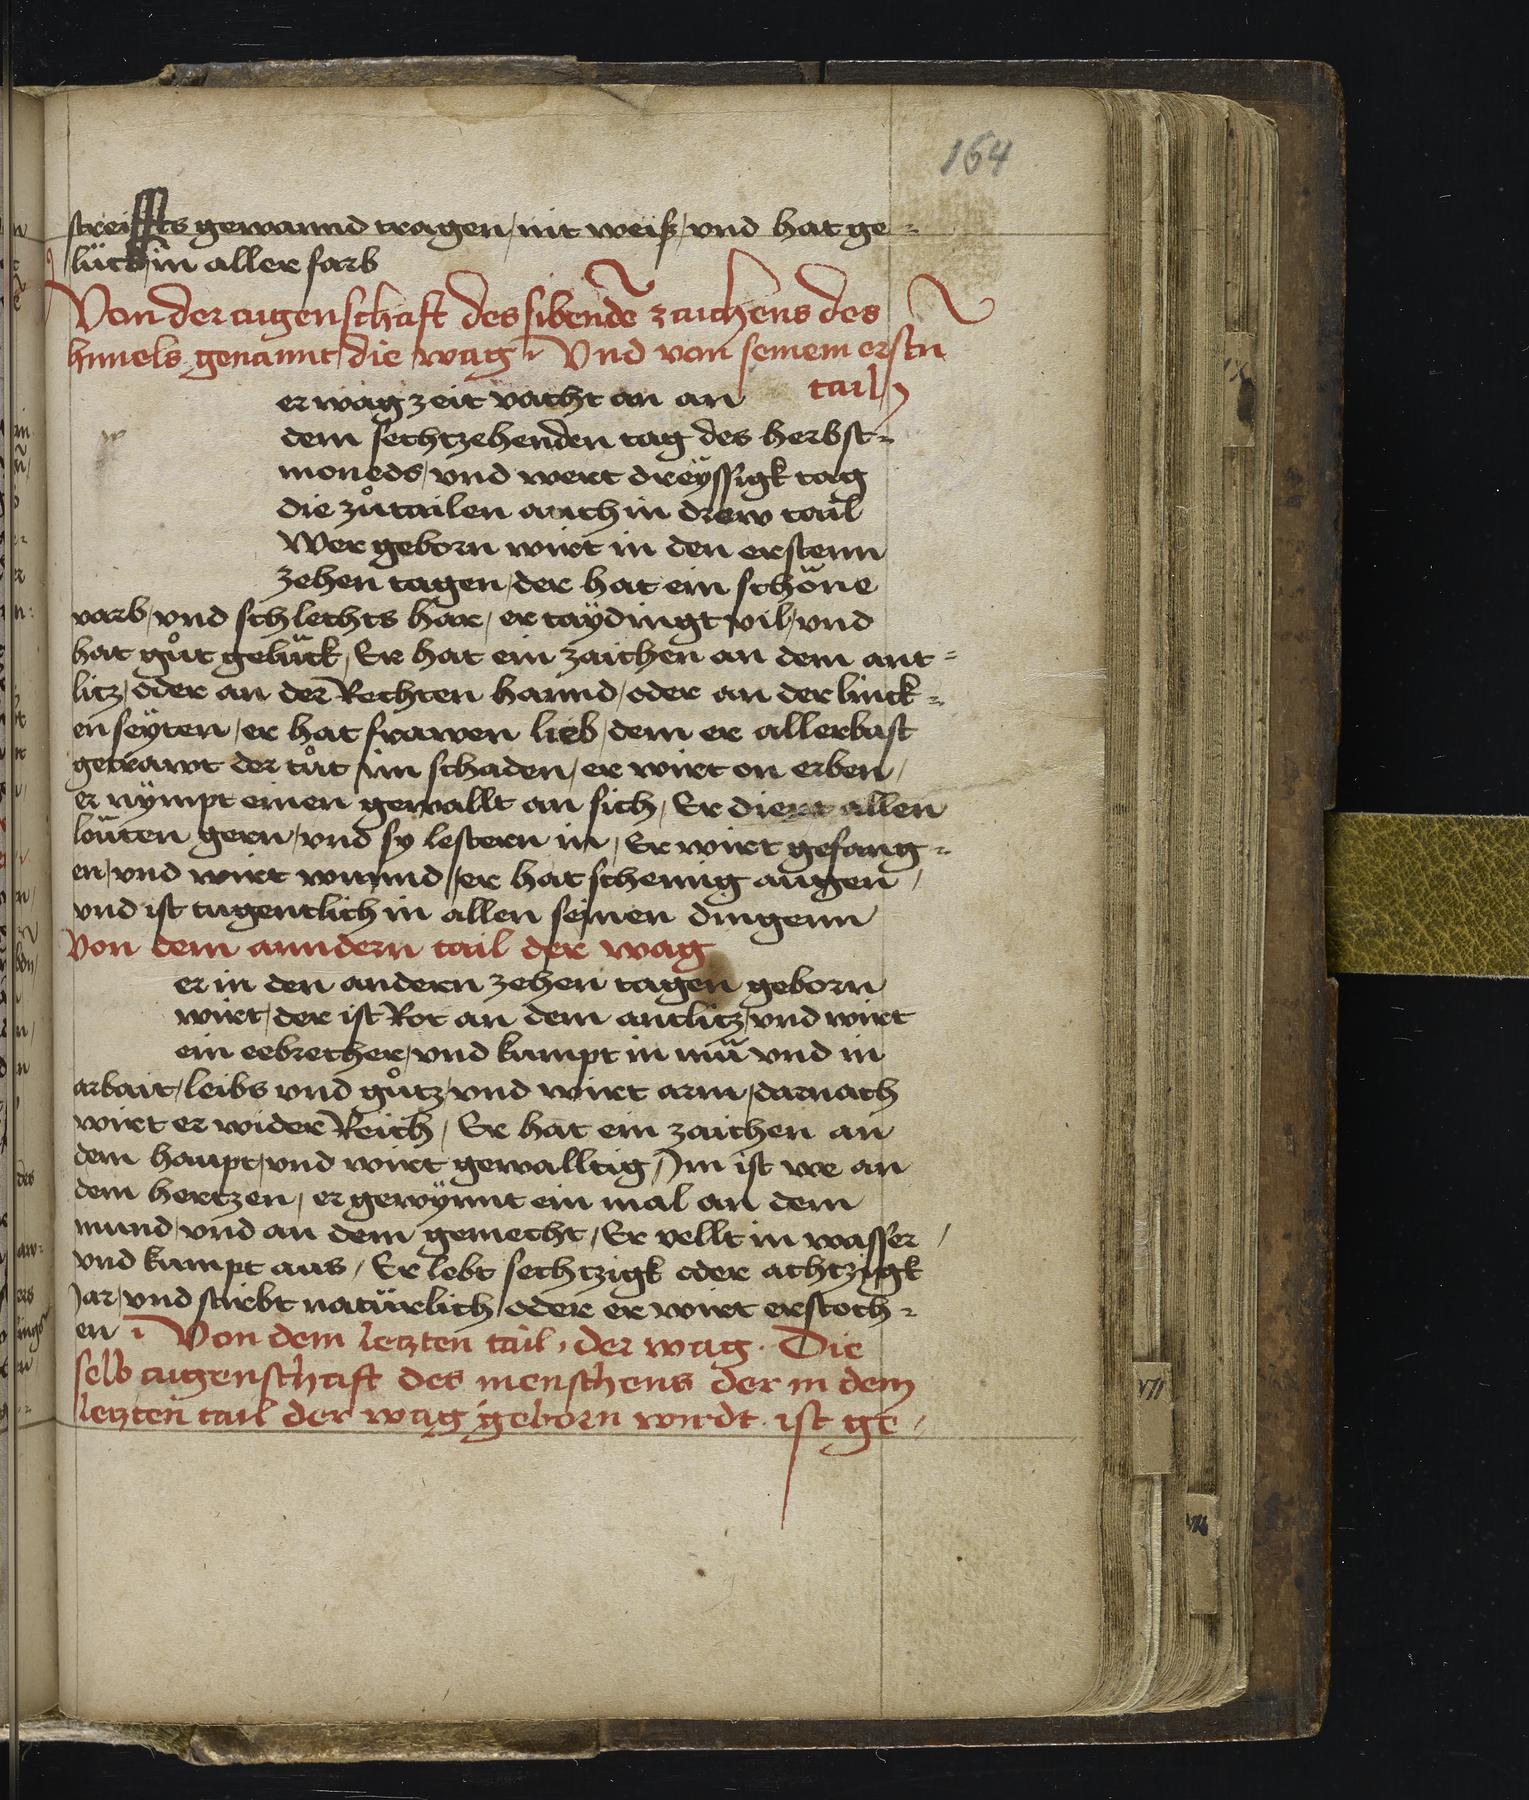 164
streiffts gewannd tragen / nit weiß / vnd hat ge=
lück in aller farb
Von der aigenschaft des sibenden zaichens des
himels genannt die wag Vnd von seinem ersten
tail
er wag zeit vacht an an
dem sechtzehenden tag des herbst=
moneds / vnd wert dreÿssigk tag
die zů tailen auch in drew tail
Wer geborn wirt in den erstenn
zehen tagen / der hat ein schöne
varb / vnd schlechts har / er taÿdingt vil / vnd
hat gůt gelück / Er hat ein zaichen an dem ant=
litz / oder an der Rechten hannd / oder an der linck=
en seÿten / er hat frawen lieb / dem er allerbast
getrawt der tůt im schaden / er wirt on erben /
er nÿmpt einen gewallt an sich / Er dient allen
leüten gern / vnd sy lestern in / Er wirt gefang=
en / vnd wirt wunnd / er hat scheinig augen /
vnd ist tugentlich in allen seinen dingenn
Von dem anndern tail der wag
er in den andern zehen tagen geborn
wirt / der ist Rot an dem antlitz / vnd wirt
ein eebrecher / vnd kumpt in müe vnd in
arbait / leibs vnd gůtz / vnd wirt arm / darnach
wirt er wider Reich / Er hat ein zaichen an
dem haupt / vnd wirt gewalltig / Im ist we an
dem hertzen / er gewÿnnt ein mal an dem
mund / vnd an dem gemecht / Er vellt in wasser /
vnd kumpt aus / Er lebt sechtzigk oder achtzigk
Jar / vnd stirbt natürlich / oder er wirt erstoch=
en Von dem letzten tail der wag. Die
selb aigenschaft des menschens der in dem
letzten tail der wag geborn wirdt ist ge